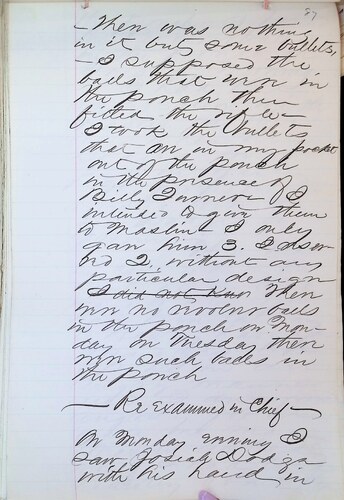 27
- There was nothing
in it but some bullets,
- I supposed the
balls that were in
the pouch then
fitted the rifle -
I took the bullets
that are in my pocket
out of the pouch
in the presence of
Billy Turner & I
intended to give them
to Maslin I only
gave him 3. I
2 without any
particular design
I did not Know There
were no revolver balls
in the pouch on Mon-
day on Tuesday there
were such balls in
the pouch
- Re examined in Chief -
On Monday evening I
saw Josiah Dodge
with his hand in